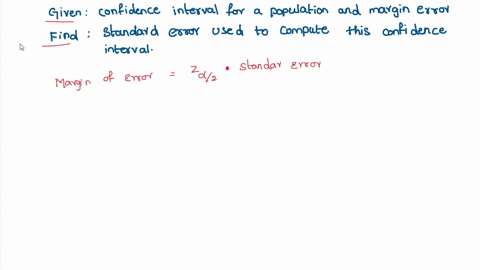 Given: confidence interval for a population and margin error
Find: Standard error used to compute this confidence
interval.
Margin of error = Zα/2 • standar error